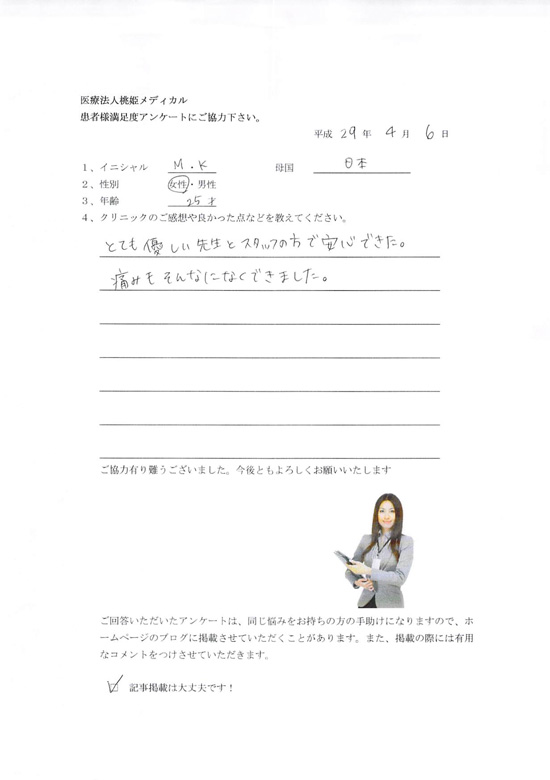 医療法人桃姫メディカル
患者様満足度アンケートにご協力下さい。
平成 29 年 4 月 6 日
1、イニシャル M・K 母国 日本
2、性別 女性・男性
3、年齢 25才
4、クリニックのご感想や良かった点などを教えてください。
とても優しい先生とスタッフの方で安心できた。
痛みもそんなになくできました。
ご協力有り難うございました。今後ともよろしくお願いいたします
ご回答いただいたアンケートは、同じ悩みをお持ちの方の手助けになりますので、ホ
ームページのブログに掲載させていただくことがあります。また、掲載の際には有用
なコメントをつけさせていただきます。
記事掲載は大丈夫です！